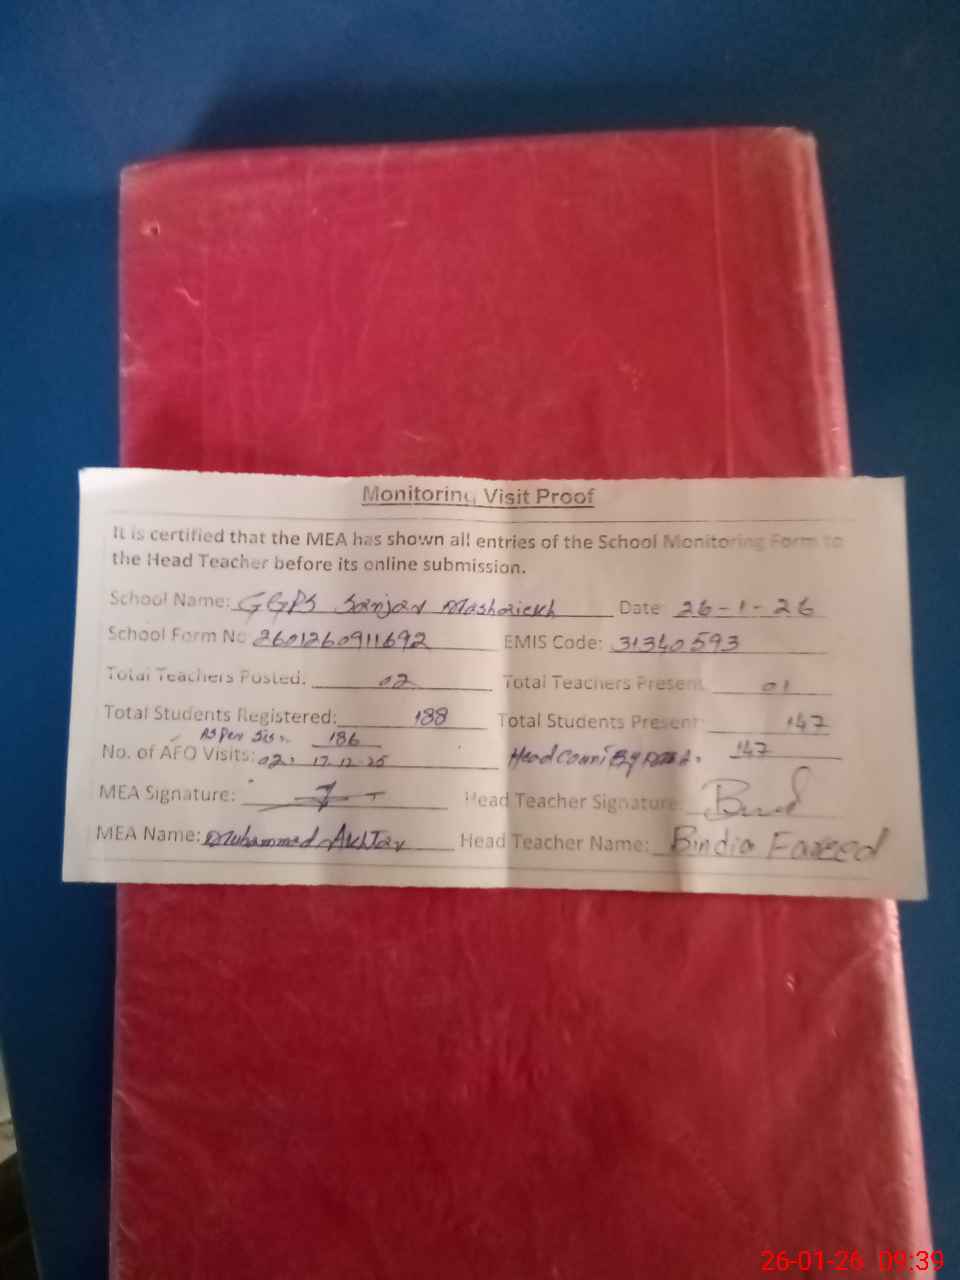 Monitoring Visit Proof
It is certified that the MEA has shown all entries of the School Monitoring Form to
the Head Teacher before its online submission.
School Name: GGPS Sanjar Mashaiekh Date 26-1-26
School Form No 2601260911692 EMIS Code: 31340593
Total Teachers Posted: 02 Total Teachers Present 01
Total Students Registered: 188 Total Students Present: 147
As Per Sis 186
No. of AFO Visits: 02, 17.12.25 Head Count 147
MEA Signature: Head Teacher Signature:
MEA Name: Muhammad Akhtar Head Teacher Name: Bindia Fareed
26-01-26 09:39